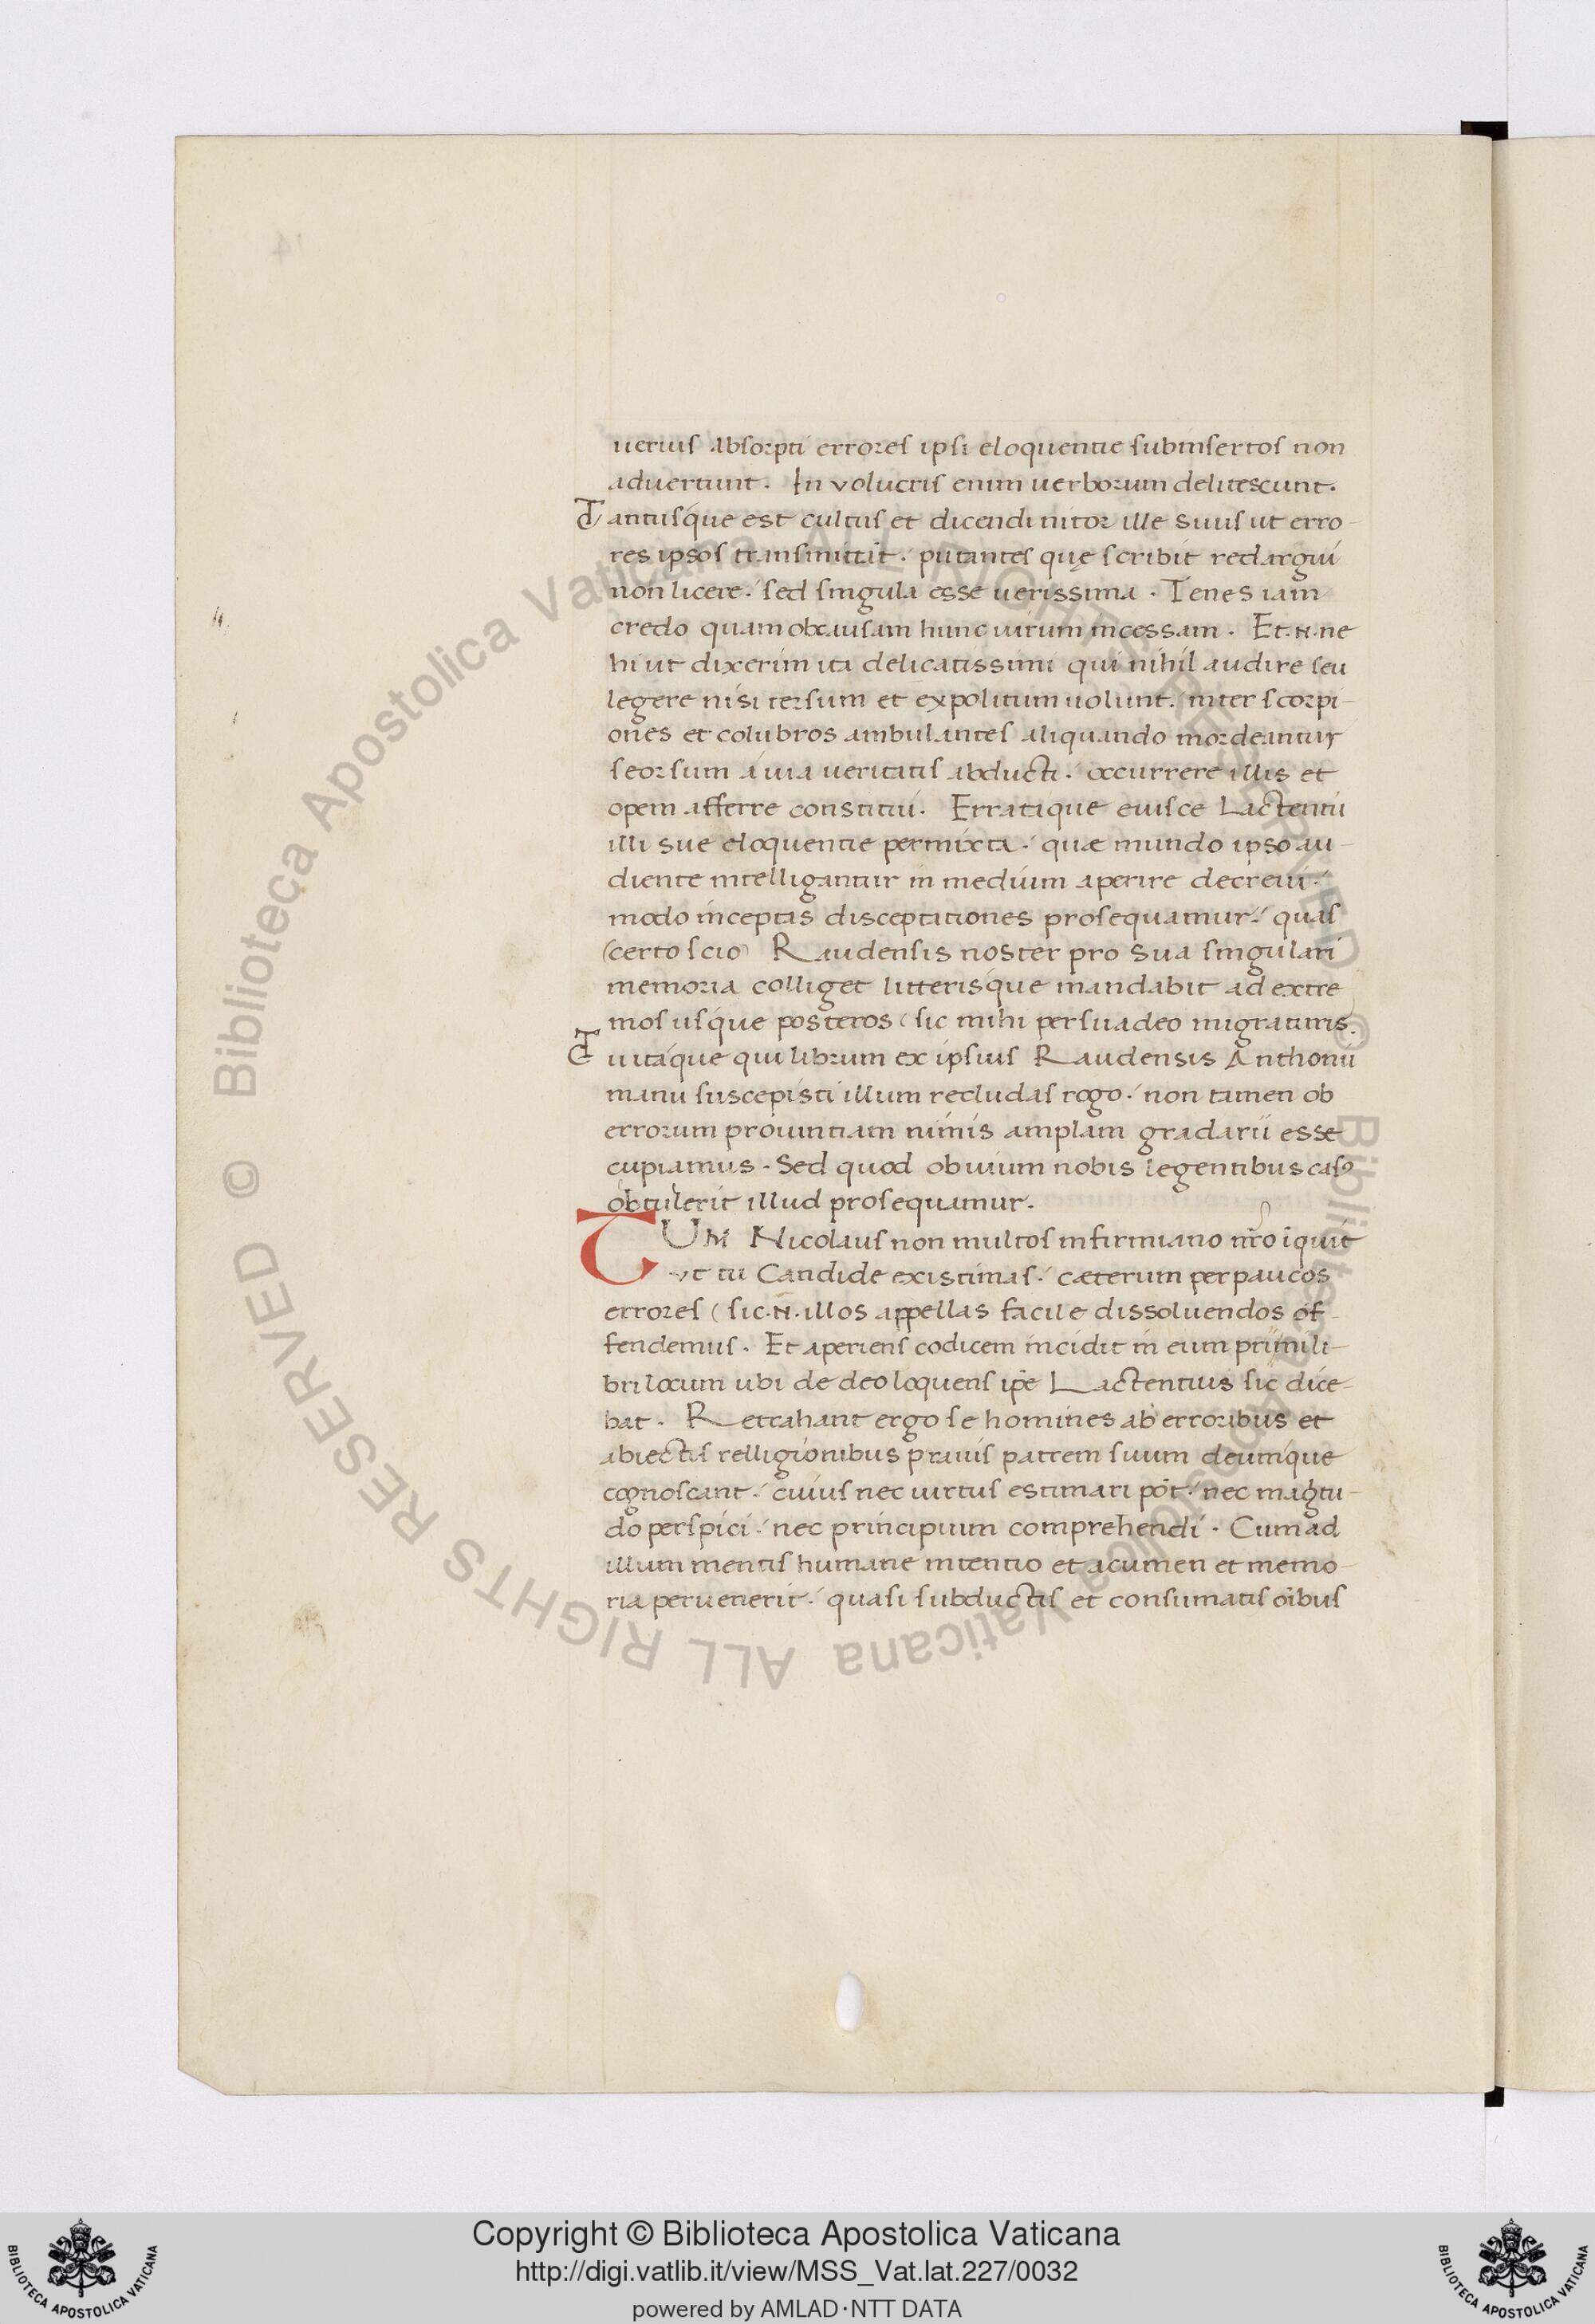 uerius absorpti errores ipsi eloquentie subinsertos non
aduertunt. In volucris enim uerborum delitescunt.
Tantusque est cultus et dicendi nitor ille suus ut erro-
res ipsos transmittit. putantes quę scribit redargui
non licere. sed singula esse uerissima. Tenes iam
credo quam ob causam hunc uirum incessam. Et .n. ne
hi ut dixerim ita delicatissimi qui nihil audire seu
legere nisi tersum et expolitum uolunt. inter scorpi-
ones et colubros ambulantes aliquando mordeantur
seorsum á uia ueritatis abducti. occurrere illis et
opem afferre constitui. Errataque eiusce Lactentii
illi sue eloquentie permixta. quæ mundo ipso au-
diente intelligantur in medium aperire decreui.
modo inceptas disceptationes prosequamur. quas
(certo scio) Raudensis noster pro sua singulari
memoria colliget litterisque mandabit ad extre
mos usque posteros (sic mihi persuadeo migraturis.
Tu itaque qui librum ex ipsius Raudensis Anthonii
manu suscepisti illum recludas rogo. non tamen ob
errorum prouintiam nimis amplam gradarii esse
cupiamus. Sed quod obuium nobis legentibus casꝰ
obtulerit illud prosequamur.
TUM Nicolaus non multos in firmiano nr̄o iquit
vt tu Candide existimas. cæterum perpaucos
errores (sic .n. illos appellas facile dissoluendos of-
fendemus. Et aperiens codicem incidit in eum primi li-
bri locum ubi de deo loquens ip̄e Lactentius sic dice-
bat. Retrahant ergo se homines ab erroribus et
abiectis relligionibus prauis patrem suum deumque
cognoscant. cuius nec uirtus estimari pōt. nec magtu-
do perspici. nec principium comprehendi. Cum ad
illum mentis humane intentio et acumen et memo-
ria peruenerit. quasi subductis et consumatis oībus
Copyright © Biblioteca Apostolica Vaticana
http://digi.vatlib.it/view/MSS_Vat.lat.227/0032
powered by AMLAD·NTT DATA
BIBLIOTECA APOSTOLICA VATICANA
BIBLIOTECA APOSTOLICA VATICANA
© Biblioteca Apostolica Vaticana ALL RIGHTS RESERVED © Biblioteca Apostolica Vaticana ALL RIGHTS RESERVED